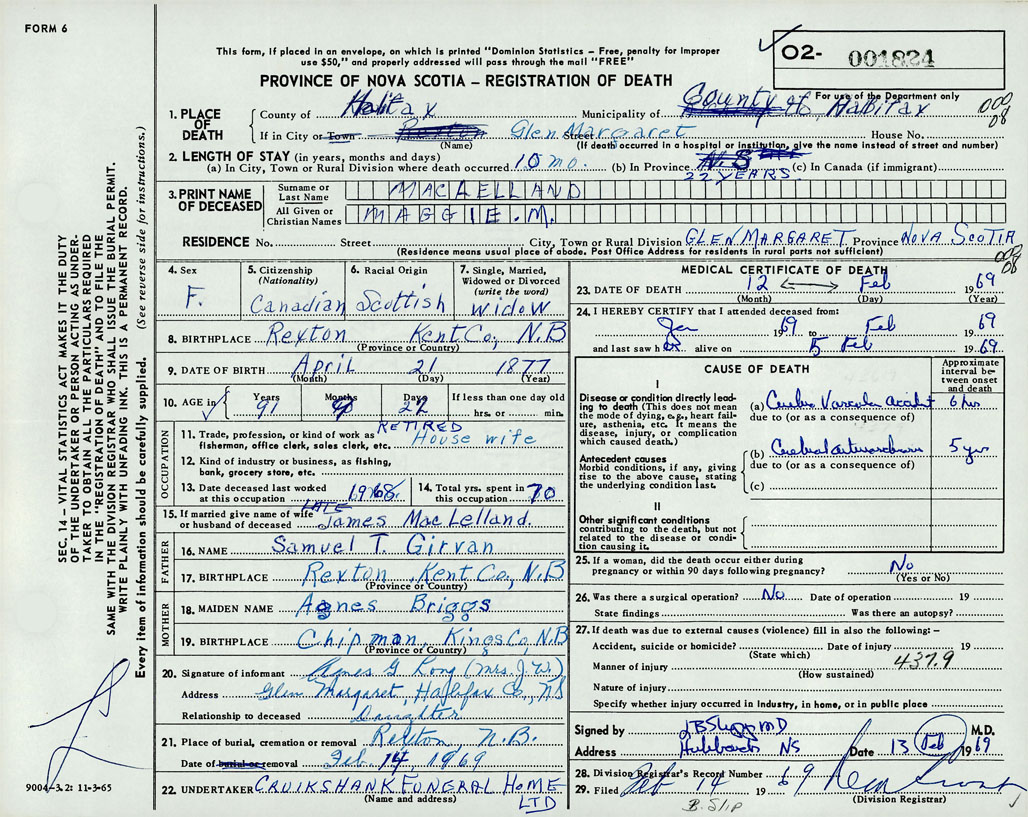 FORM 6
This form, if placed in an envelope, on which is printed "Dominion Statistics – Free, penalty for improper
use $50," and properly addressed will pass through the mail "FREE"
O2- 001824
PROVINCE OF NOVA SCOTIA – REGISTRATION OF DEATH
For use of the Department only
1. PLACE OF DEATH
County of Halifax Municipality of County of Halifax
If in City or Town Glen Margaret Street House No.
(Name) (If death occurred in a hospital or institution, give the name instead of street and number)
2. LENGTH OF STAY (in years, months and days)
(a) In City, Town or Rural Division where death occurred 10 mo. (b) In Province N.S (c) In Canada (if immigrant)
22 YEARS
3. PRINT NAME OF DECEASED
Surname or Last Name MACLELLAND
All Given or Christian Names MAGGIE.M.
RESIDENCE No. Street City, Town or Rural Division GLEN MARGARET Province NOVA SCOTIA
(Residence means usual place of abode. Post Office Address for residents in rural parts not sufficient)
4. Sex F.
5. Citizenship (Nationality) Canadian
6. Racial Origin Scottish
7. Single, Married, Widowed or Divorced (write the word) Widow
8. BIRTHPLACE Rexton Kent Co, N.B
(Province or Country)
9. DATE OF BIRTH April 21 1877
(Month) (Day) (Year)
10. AGE in Years 91 Months Days 22 If less than one day old
hrs. or min.
OCCUPATION
11. Trade, profession, or kind of work as RETIRED House wife
fisherman, office clerk, sales clerk, etc.
12. Kind of industry or business, as fishing,
bank, grocery store, etc.
13. Date deceased last worked at this occupation 1968
14. Total yrs. spent in this occupation 70
15. If married give name of wife or husband of deceased LATE James MacLelland.
FATHER
16. NAME Samuel T. Girvan
17. BIRTHPLACE Rexton, Kent Co, N.B
(Province or Country)
MOTHER
18. MAIDEN NAME Agnes Briggs
19. BIRTHPLACE Chipman, Kings Co, N.B
(Province or Country)
20. Signature of informant Agnes G Long (Mrs. J. W.)
Address Glen Margaret, Halifax Co., NS
Relationship to deceased Daughter
21. Place of burial, cremation or removal Rexton N.B.
Date of burial or removal Feb. 14, 1969
22. UNDERTAKER CRUIKSHANK FUNERAL HOME LTD
(Name and address)
MEDICAL CERTIFICATE OF DEATH
23. DATE OF DEATH 12 Feb 1969
(Month) (Day) (Year)
24. I HEREBY CERTIFY that I attended deceased from:
Jan 1969 to Feb 1969
and last saw her alive on 5 Feb 1969
CAUSE OF DEATH
Approximate interval between onset and death
I
Disease or condition directly leading to death (This does not
mean the mode of dying, e.g., heart failure, asthenia, etc. It means the
disease, injury, or complication
which caused death.)
(a) Vascular Accident 6 hrs
due to (or as a consequence of)
Antecedent causes
Morbid conditions, if any, giving
rise to the above cause, stating
the underlying condition last.
(b) Cerebral 5 yrs
due to (or as a consequence of)
(c)
II
Other significant conditions
contributing to the death, but not
related to the disease or condition causing it.
25. If a woman, did the death occur either during
pregnancy or within 90 days following pregnancy? No
(Yes or No)
26. Was there a surgical operation? No Date of operation 19
State findings Was there an autopsy?
27. If death was due to external causes (violence) fill in also the following: –
Accident, suicide or homicide? Date of injury 19
(State which)
Manner of injury 437.9
(How sustained)
Nature of injury
Specify whether injury occurred in industry, in home, or in public place
Signed by M.D. M.D.
Address Hubbards NS Date 13 Feb 1969
28. Division Registrar's Record Number
29. Filed Feb 14 1969
(Division Registrar)
B. Slip
SEC. 14 – VITAL STATISTICS ACT MAKES IT THE DUTY
OF THE UNDERTAKER OR PERSON ACTING AS UNDER-
TAKER TO OBTAIN ALL THE PARTICULARS REQUIRED
IN THE "REGISTRATION OF DEATH" AND TO FILE THE
SAME WITH THE DIVISION REGISTRAR WHO SHALL ISSUE THE BURIAL PERMIT.
WRITE PLAINLY WITH UNFADING INK. THIS IS A PERMANENT RECORD.
Every item of information should be carefully supplied. (See reverse side for instructions.)
9004-3.2: 11-3-65